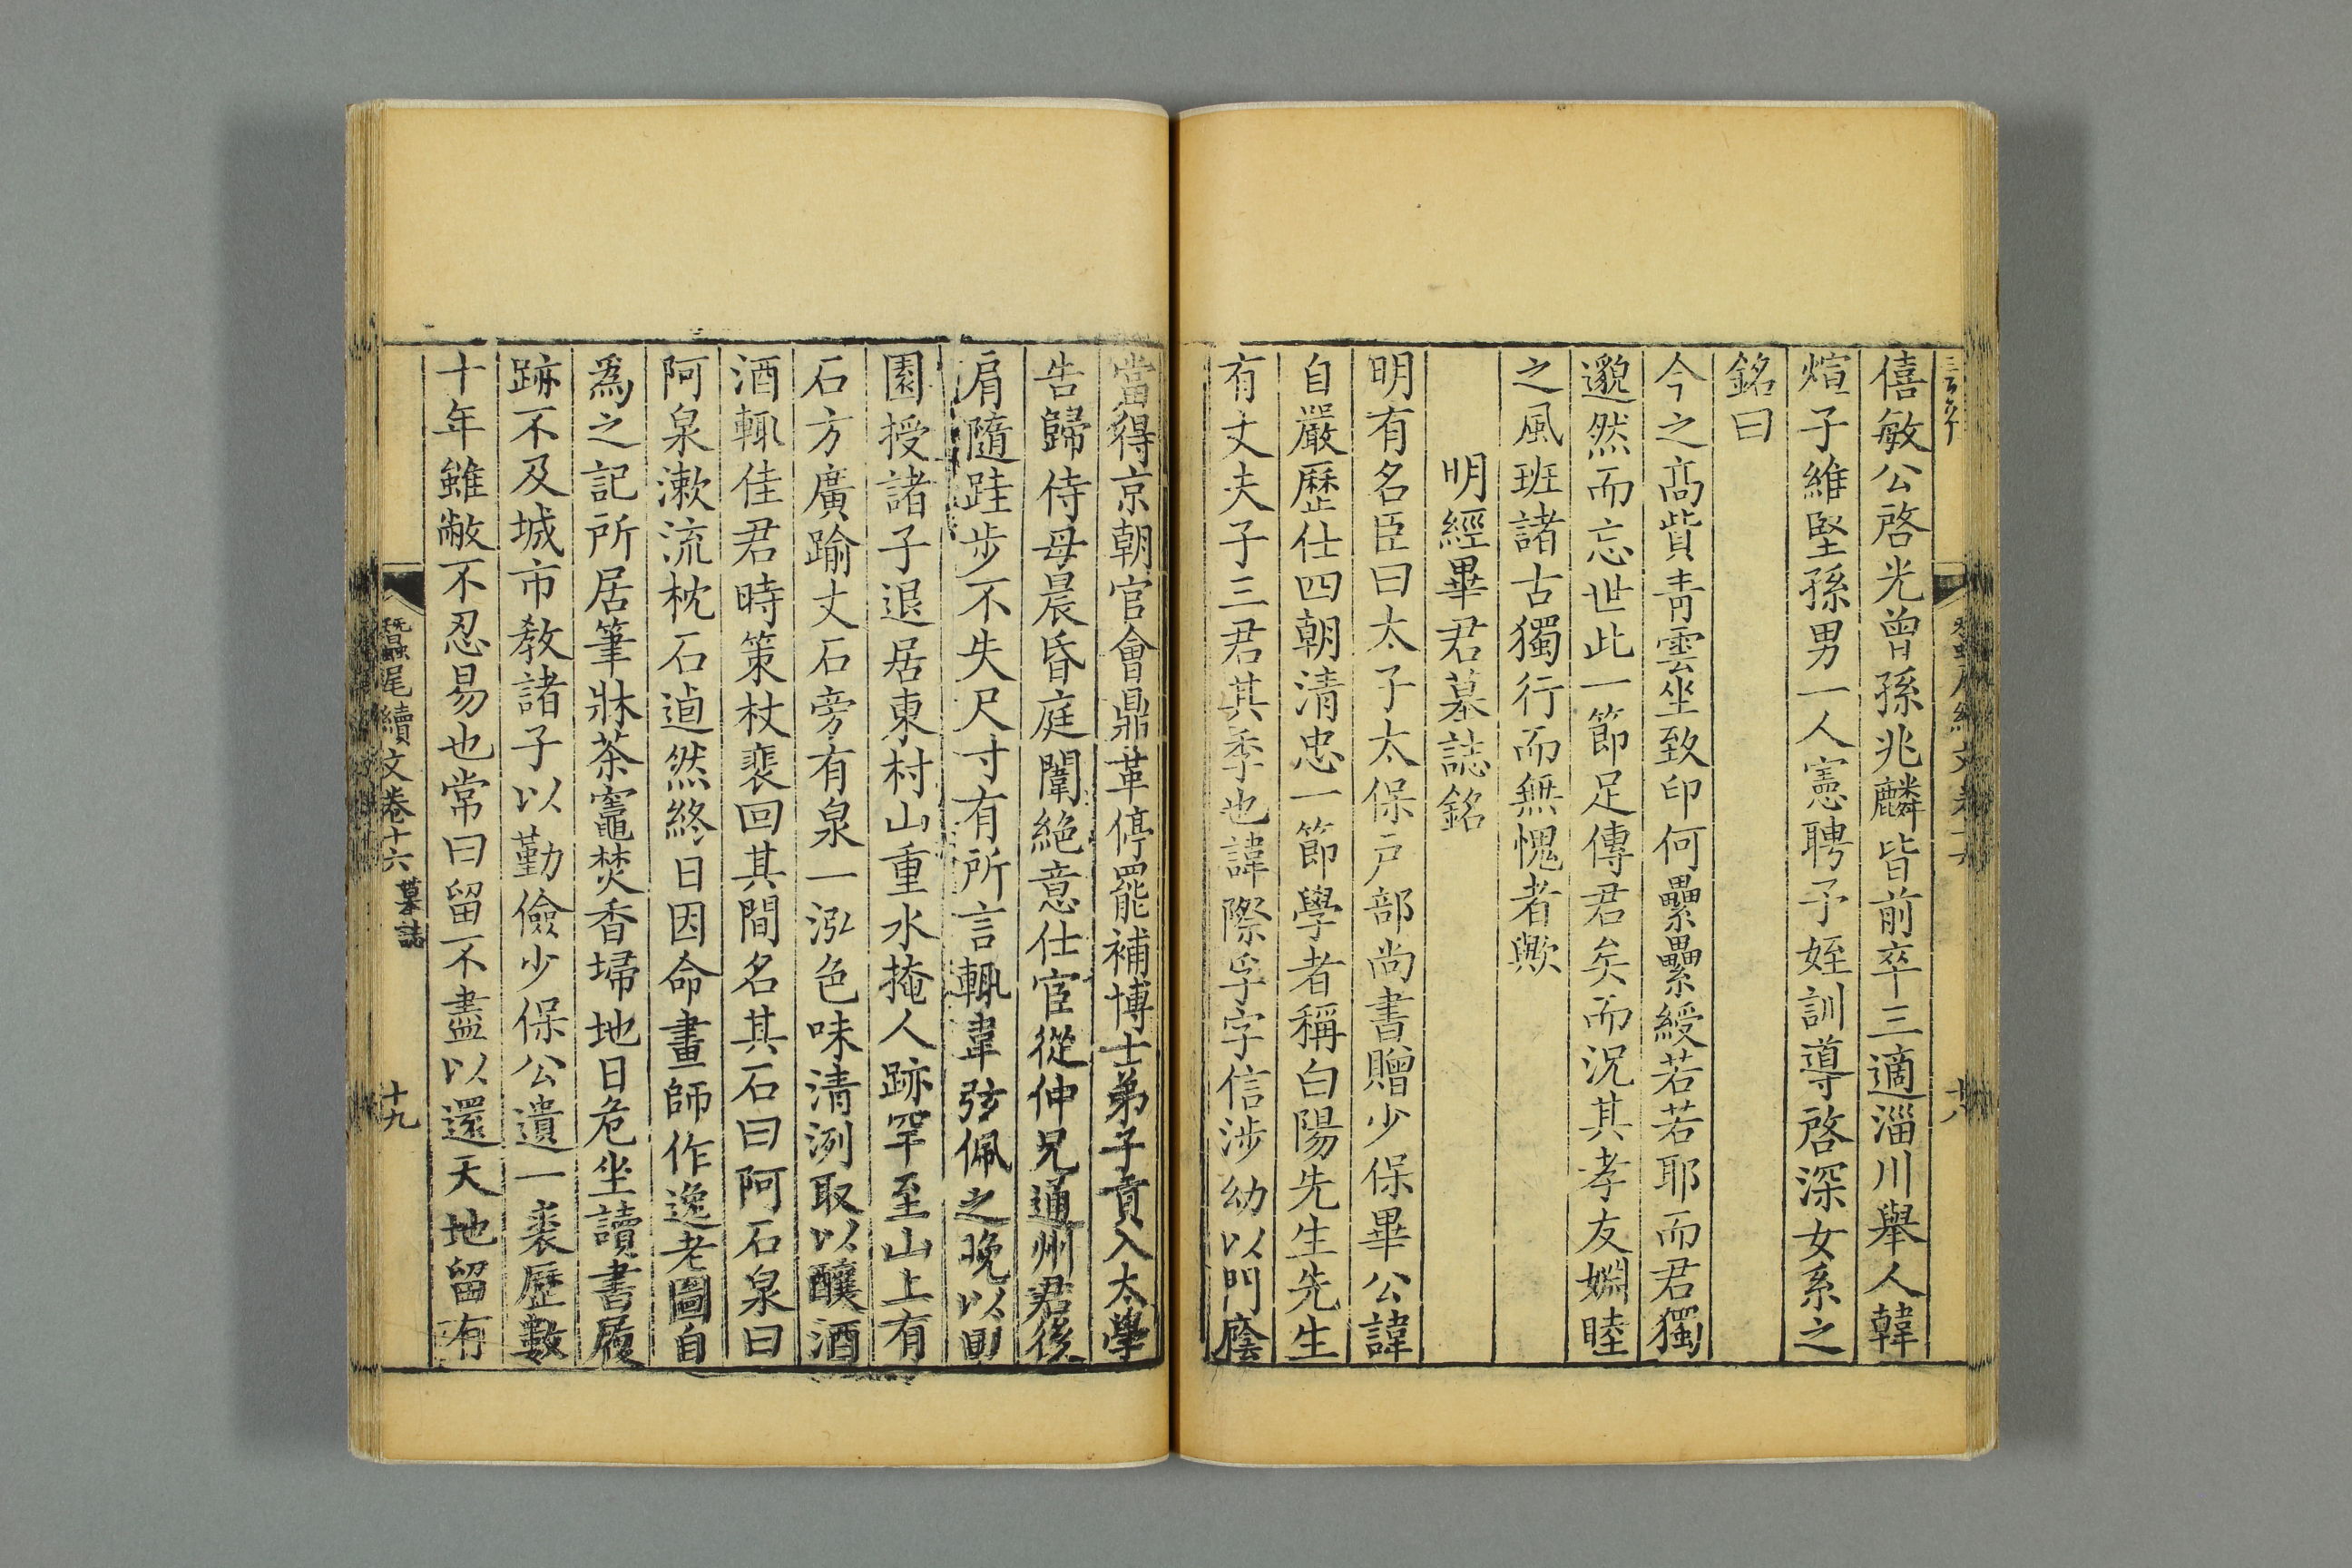 僖敏公啓光曾孫兆麟皆前卒三適淄川舉人韓
煊子維堅孫男一人憲聘予姪訓導啓深女系之
銘曰
今之髙貲青雲坐致印何纍纍綬若若耶而君獨
邈然而忘世此一節足傳君矣而況其孝友婣睦
之風班諸古獨行而無愧者歟
明經畢君墓誌銘
明有名臣曰太子太保戸部尚書贈少保畢公諱
自嚴歷仕四朝清忠一節學者稱白陽先生先生
有丈夫子三君其季也諱際孚字信涉幼以門廕
當得京朝官會鼎革停罷補博士弟子貢入太學
告歸侍母晨昏庭闈絶意仕宦從仲兄通州君後
肩隨跬步不失尺寸有所言輒韋弦佩之晚以田
園授諸子退居東村山重水掩人跡罕至山上有
石方廣踰丈石旁有泉一泓色味清洌取以釀酒
酒輒佳君時策杖裴回其間名其石曰阿石泉曰
阿泉漱流枕石逌然終日因命畫師作逸老圖自
爲之記所居筆牀茶竈焚香埽地日危坐讀書履
跡不及城市敎諸子以勤儉少保公遺一裘歷數
十年雖敝不忍易也常曰留不盡以還天地留有
蠶尾續文卷十六 墓誌 十九